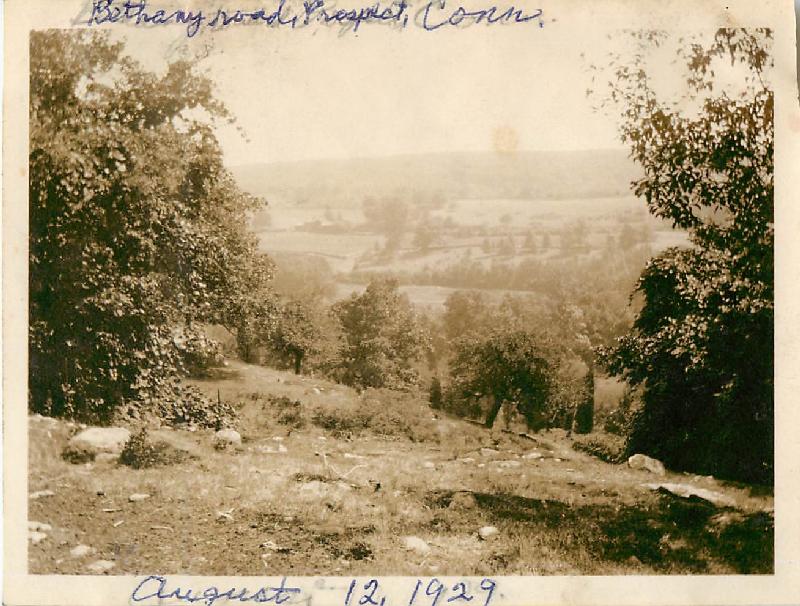 Bethany road, Prospect, Conn.
August 12, 1929.